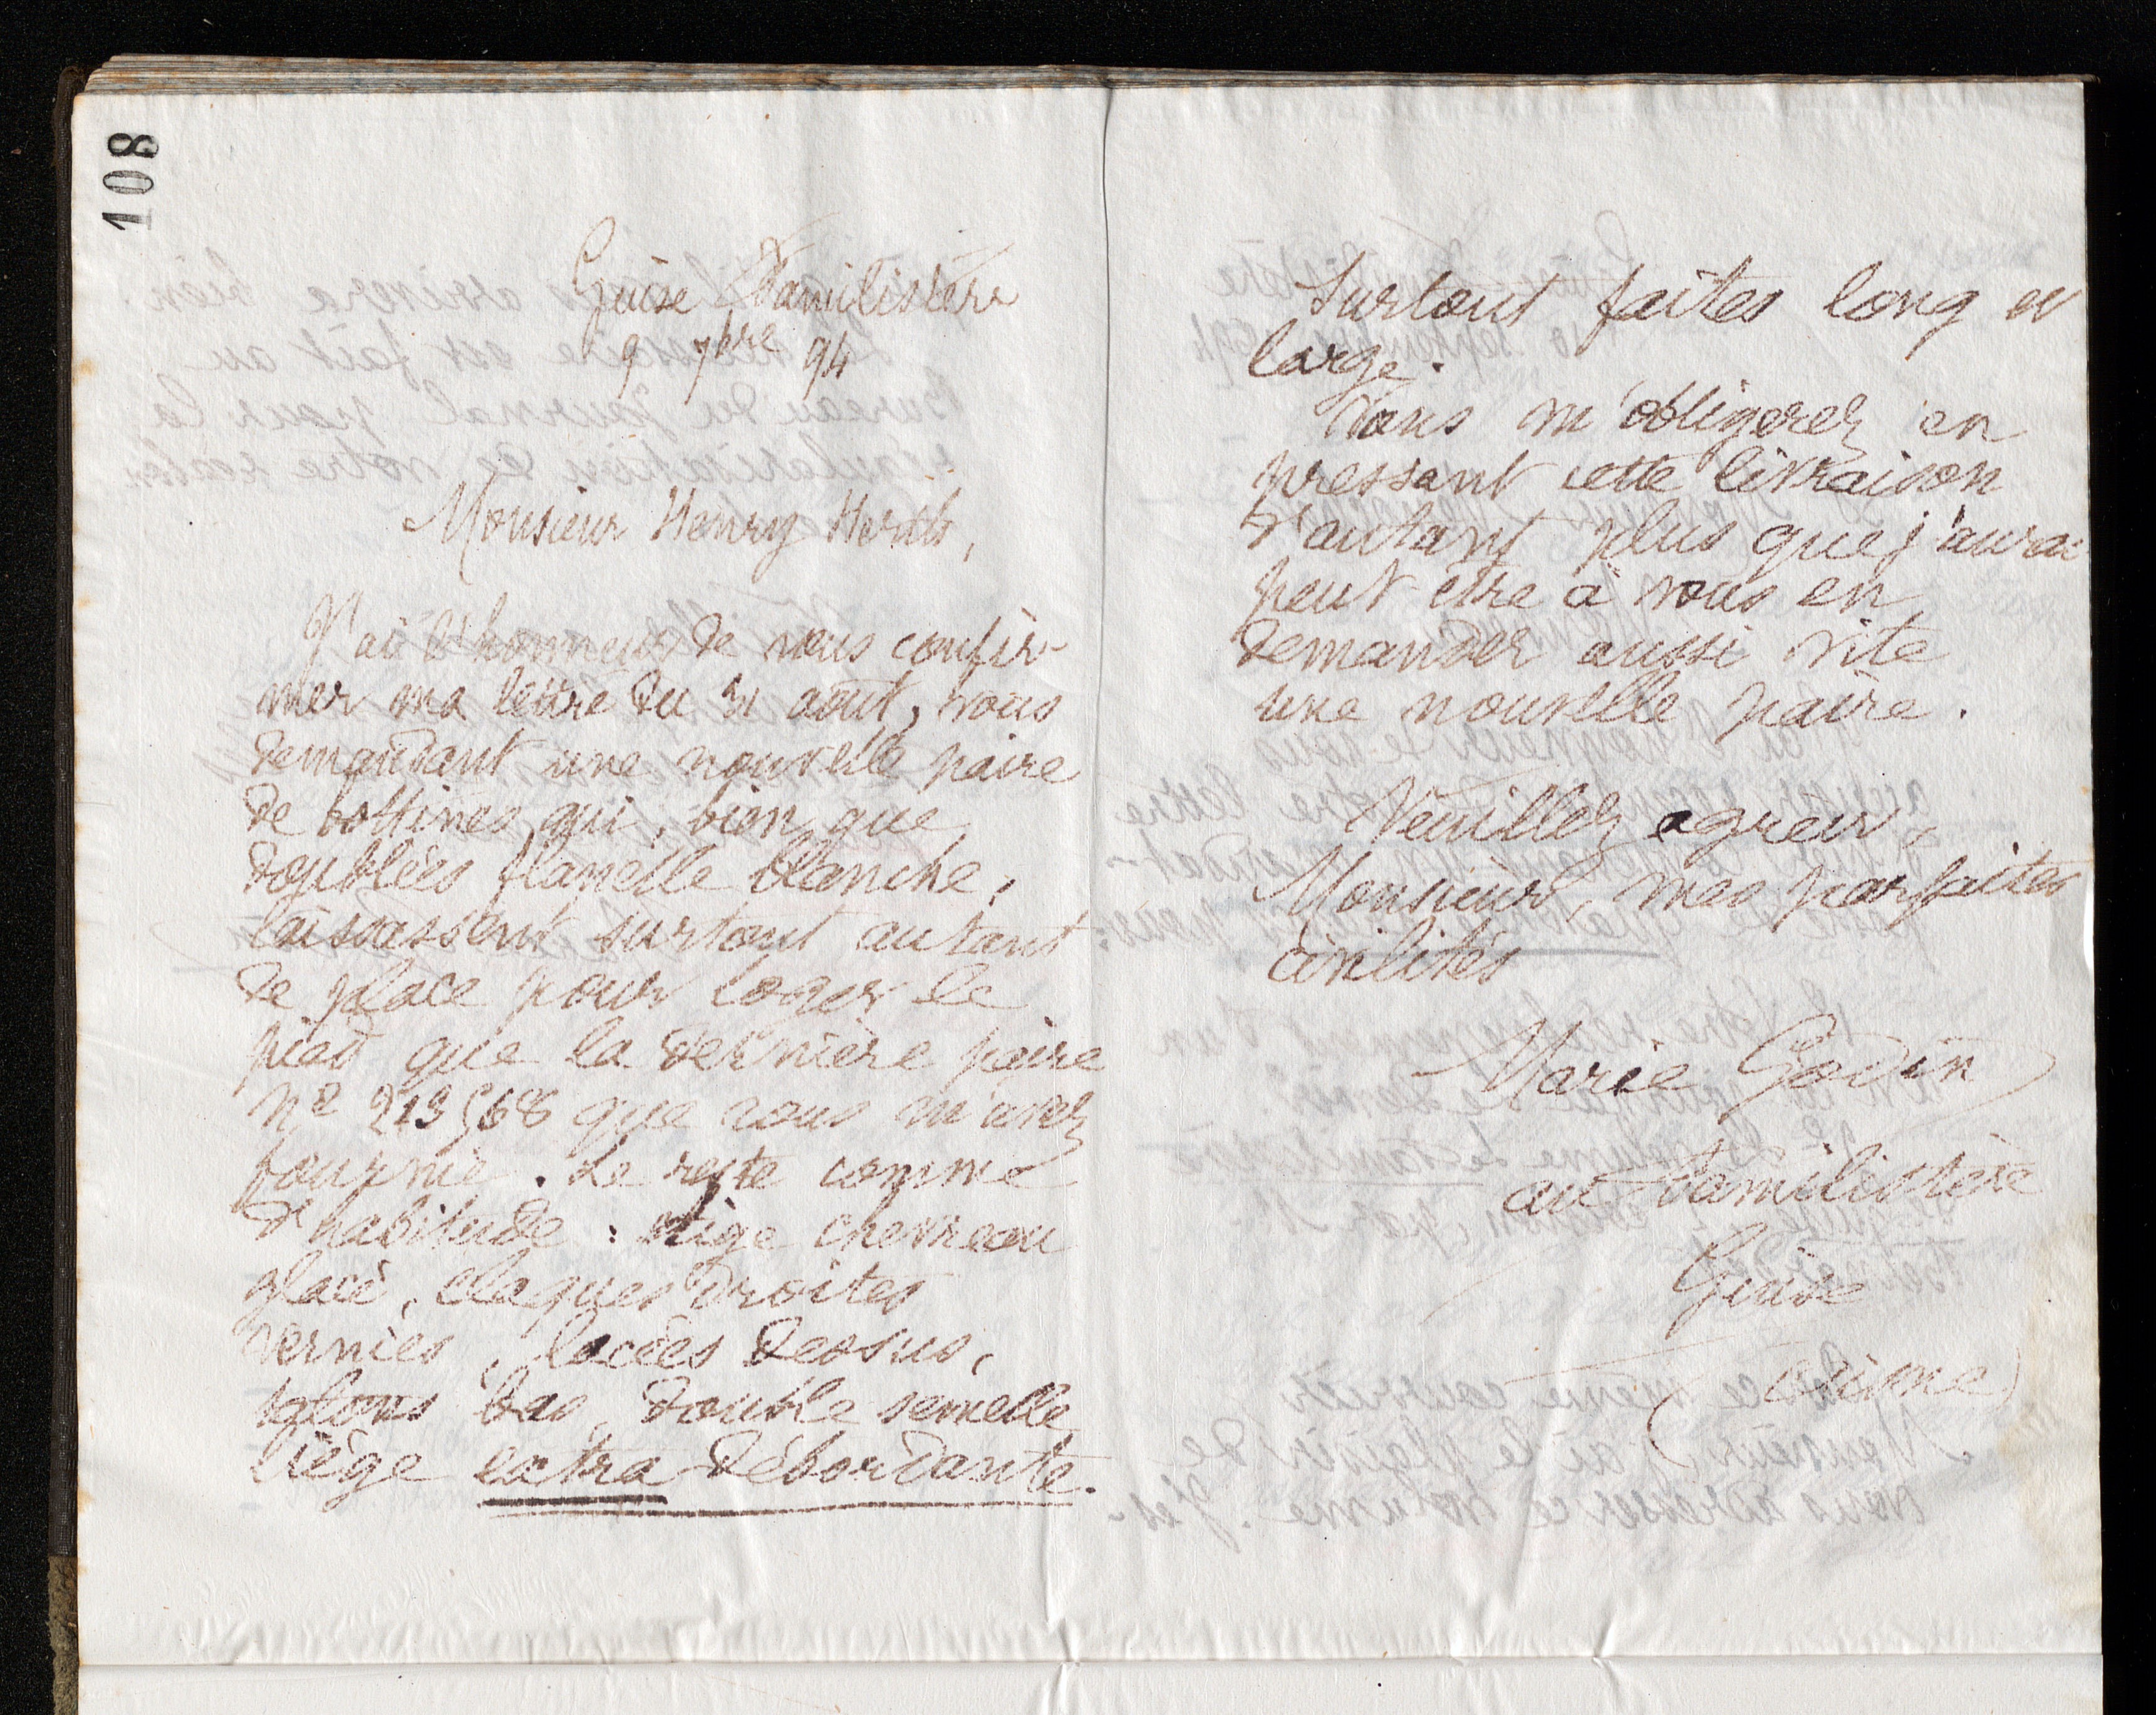 108
Guise Familistère
9 7bre 94
Monsieur Henry
J'ai l'honneur de vous confir-
mer ma lettre du 31 août, vous
demandant une nouvelle paire
de bottines qui, bien que
doublées flanelle blanche,
laissassent surtout autant
de place pour loger le
pied que la dernière paire
No 219568 que vous m'avez
fournie. Le reste comme
d'habitude : tige chevreau
glacé, claques droites
vernies, lacées dessus,
talons bas, double semelle
liège extra débordante.
Surtout faites long et
large.
Vous m'obligerez en
pressant cette livraison
d'autant plus que j'aurai
peut être à vous en
demander aussi vite
une nouvelle paire.
Veuillez agréer,
Monsieur, mes parfaites
civilités
Marie Godin
au Familistère
Guise
(Aisne)